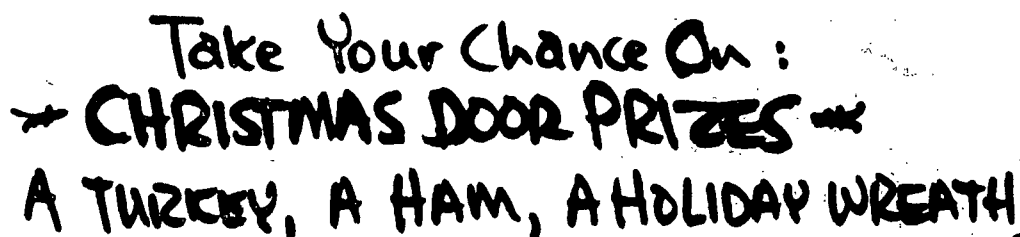 Take Your Chance On:
* CHRISTMAS DOOR PRIZES *
A TURKEY, A HAM, A HOLIDAY WREATH